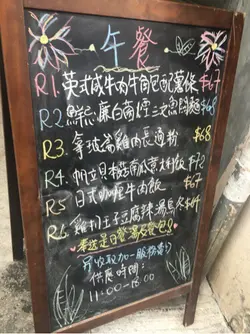 午餐
R1. 英式咸牛肉牛角包配薯條 $67
R2. 鮮忌廉白菌煙三文魚闊麵 $68
R3. 拿破崙雞肉長通粉 $68
R4. 帆立貝本菇南瓜意大利飯 $72
R5. 日式咖喱牛肉飯 $67
R6. 雞扒玉子豆腐辣湯烏冬 $64
奉送是日餐湯及餐包
另收取加一服務費
供應時間:
11:00-16:00